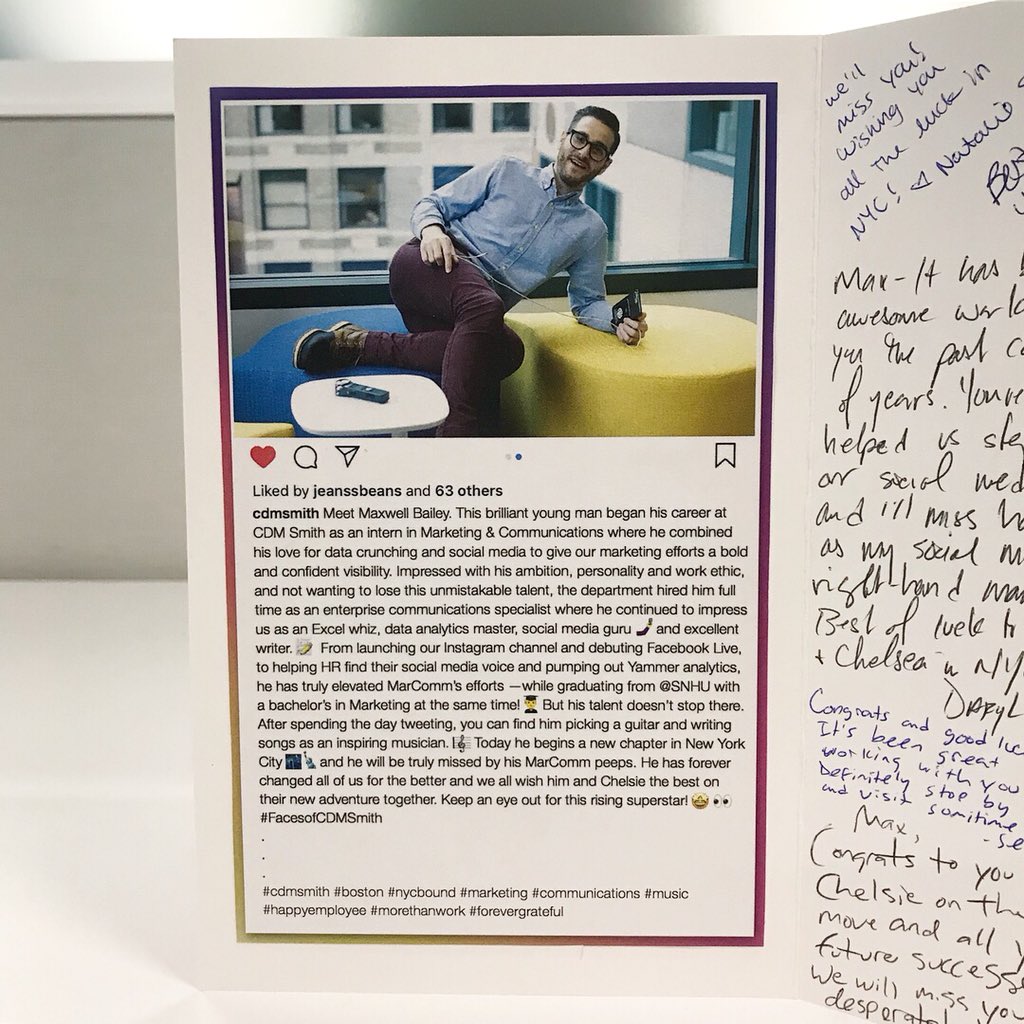 Liked by jeanssbeans and 63 others
cdmsmith Meet Maxwell Bailey. This brilliant young man began his career at
CDM Smith as an intern in Marketing & Communications where he combined
his love for data crunching and social media to give our marketing efforts a bold
and confident visibility. Impressed with his ambition, personality and work ethic,
and not wanting to lose this unmistakable talent, the department hired him full
time as an enterprise communications specialist where he continued to impress
us as an Excel whiz, data analytics master, social media guru 🤳 and excellent
writer. 📝 From launching our Instagram channel and debuting Facebook Live,
to helping HR find their social media voice and pumping out Yammer analytics,
he has truly elevated MarComm's efforts —while graduating from @SNHU with
a bachelor's in Marketing at the same time! 👨‍🎓 But his talent doesn't stop there.
After spending the day tweeting, you can find him picking a guitar and writing
songs as an inspiring musician. 🎼 Today he begins a new chapter in New York
City 🌃🗽 and he will be truly missed by his MarComm peeps. He has forever
changed all of us for the better and we all wish him and Chelsie the best on
their new adventure together. Keep an eye out for this rising superstar! 🤩 👀
#FacesofCDMSmith
.
.
.
#cdmsmith #boston #nycbound #marketing #communications #music
#happyemployee #morethanwork #forevergrateful
we'll
miss you!
wishing you
all the luck in
NYC! <3 Natalie
Max - It has
awesome
you the past
of years. You've
helped us
our social
and I'll miss
as my social
right-hand man
Best of luck to
+ Chelsea in
Daryl
Congrats and good
It's been great
working with you
Definitely stop by
and visit sometime
Max,
Congrats to you
Chelsie on the
move and all
future success
We will miss you